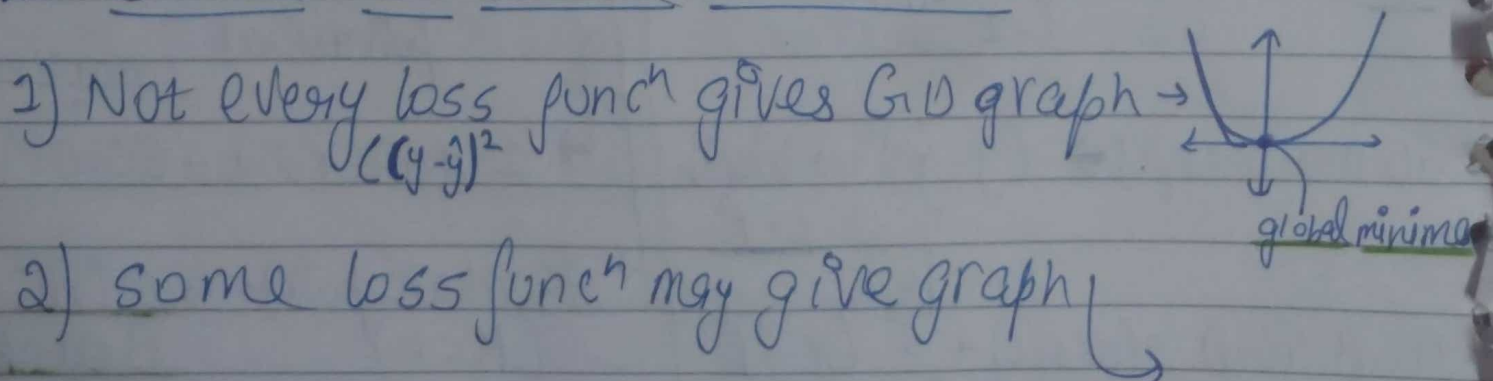 1) Not every loss funcn gives GD graph →
((y-ŷ)²
global minima
2) some loss funcn may give graph